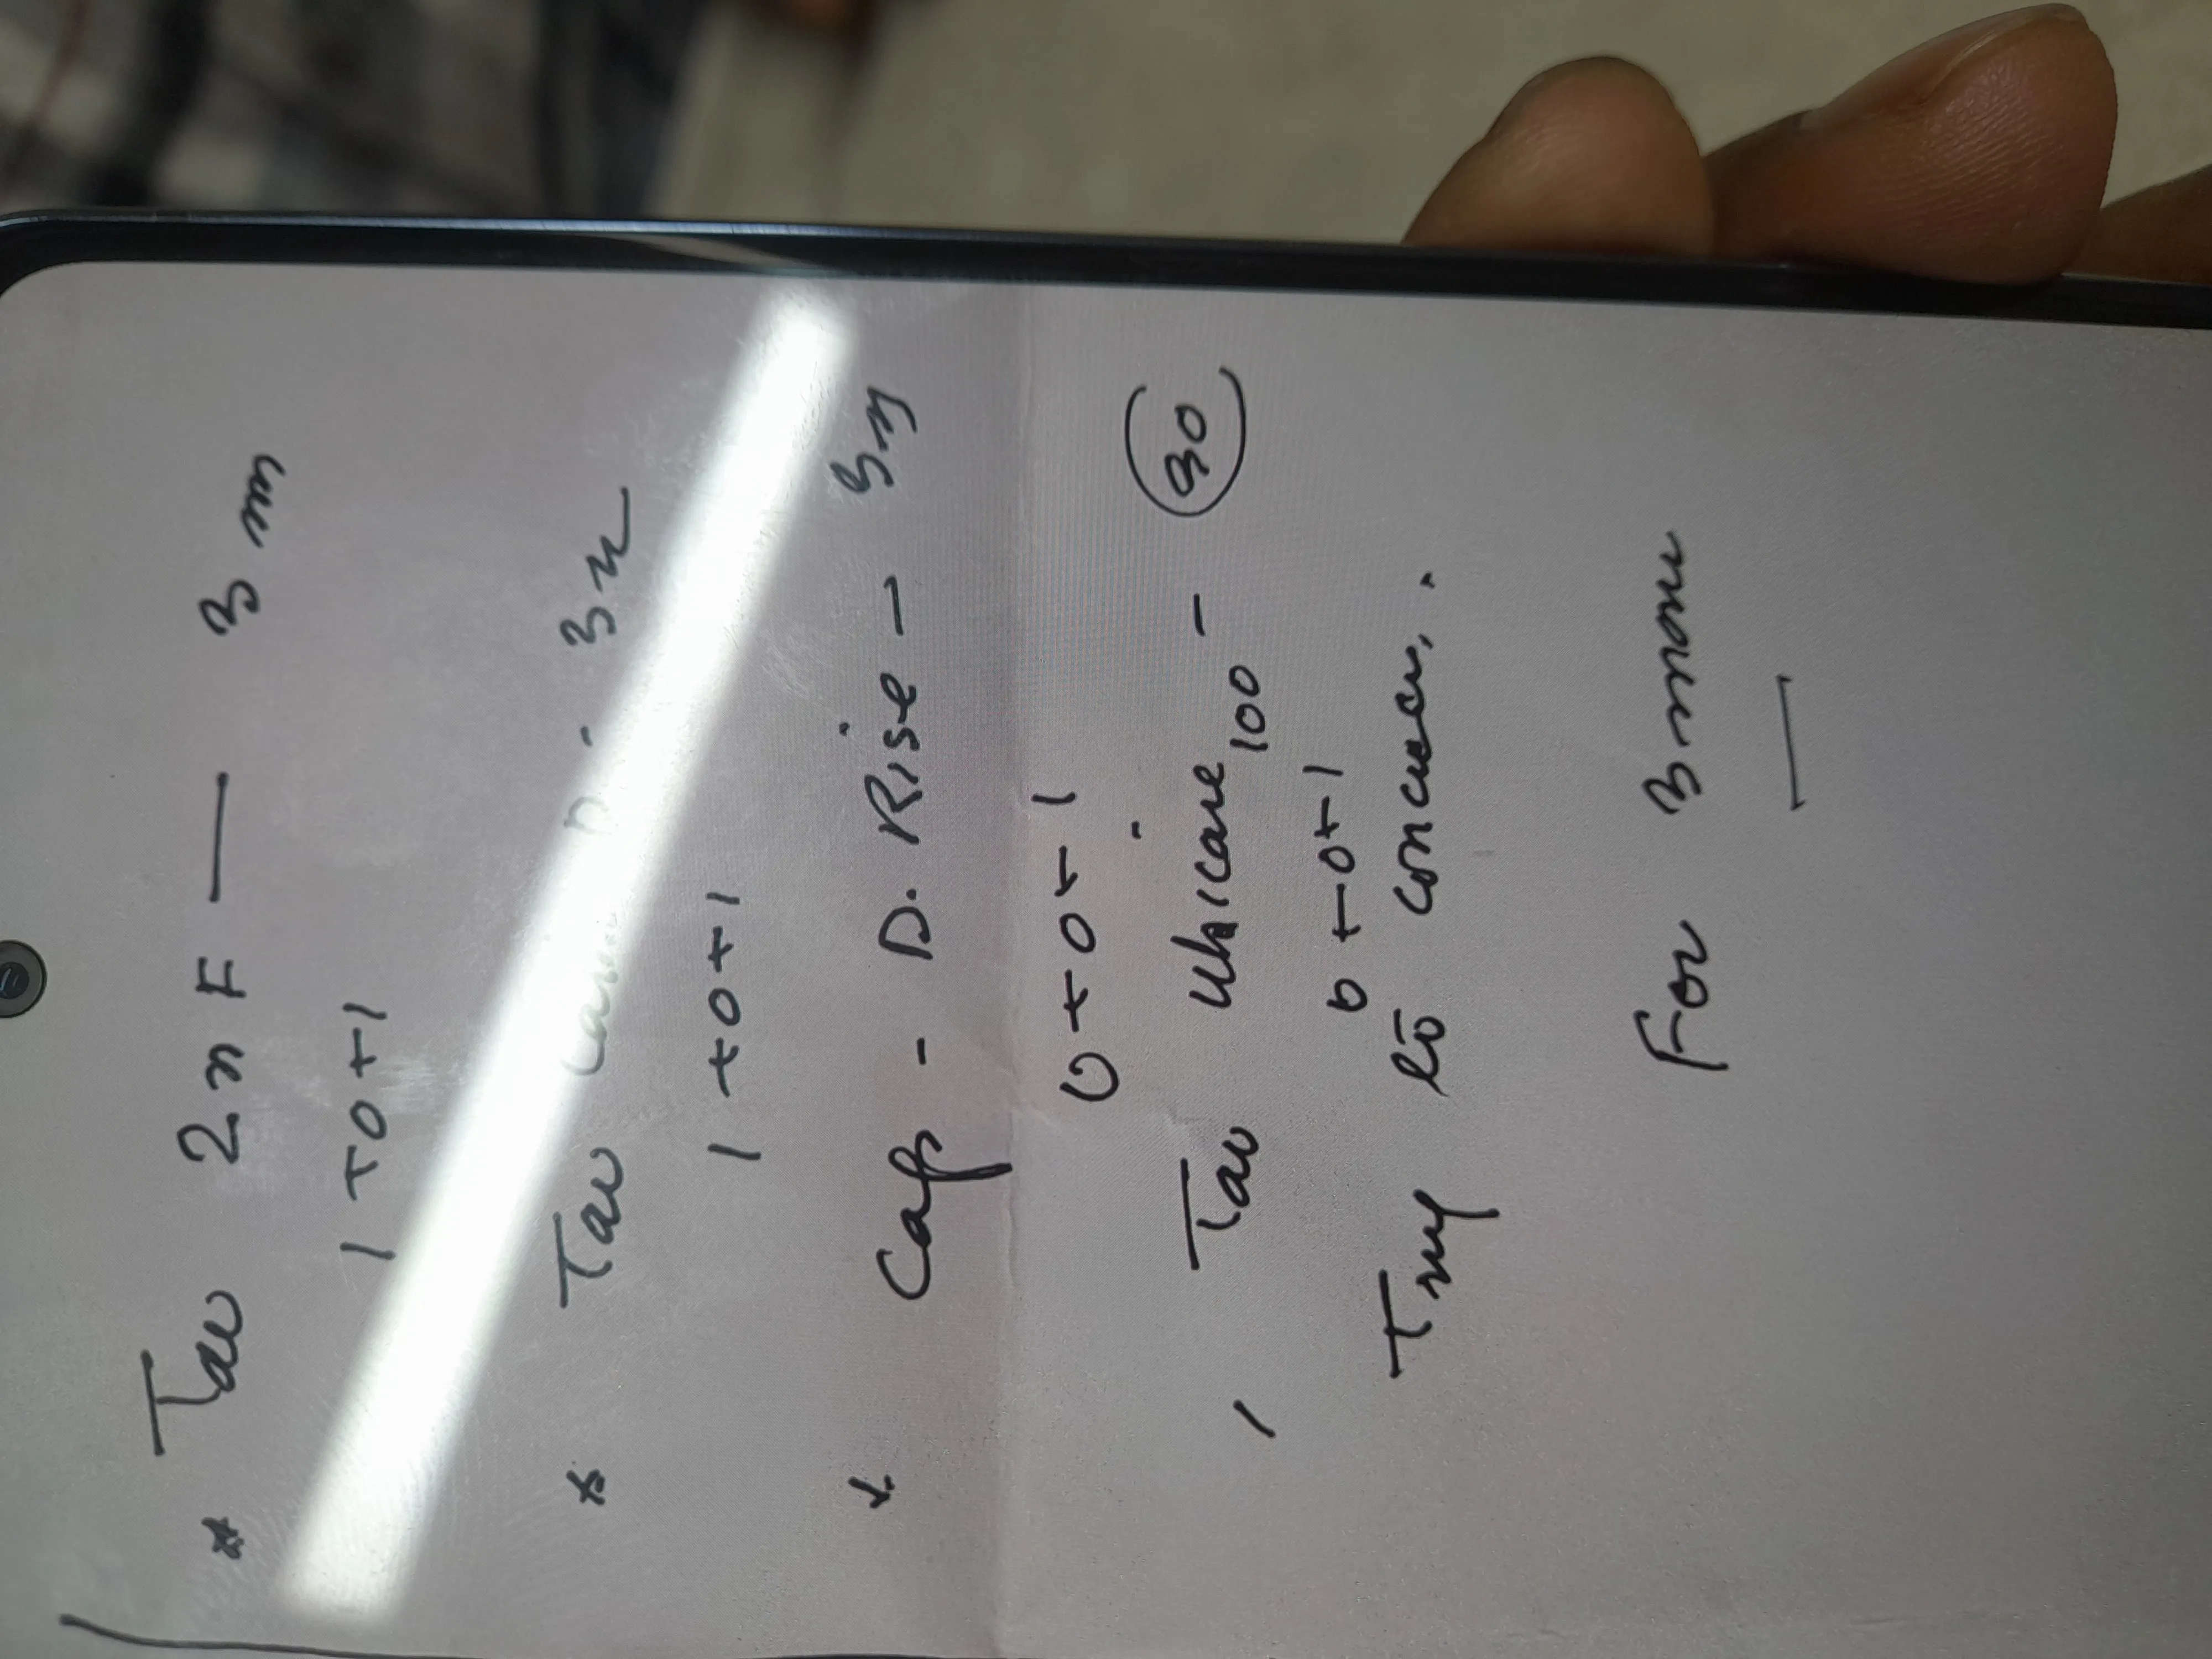 * Tab 2mF — 3 m
1+0+1
* Tab D - 3m
1+0+1
* Cap - D. Rise - 3m
0+0+1
Tab Unicare 100 - 30
0+0+1
Try to conceive.
For 3 mon